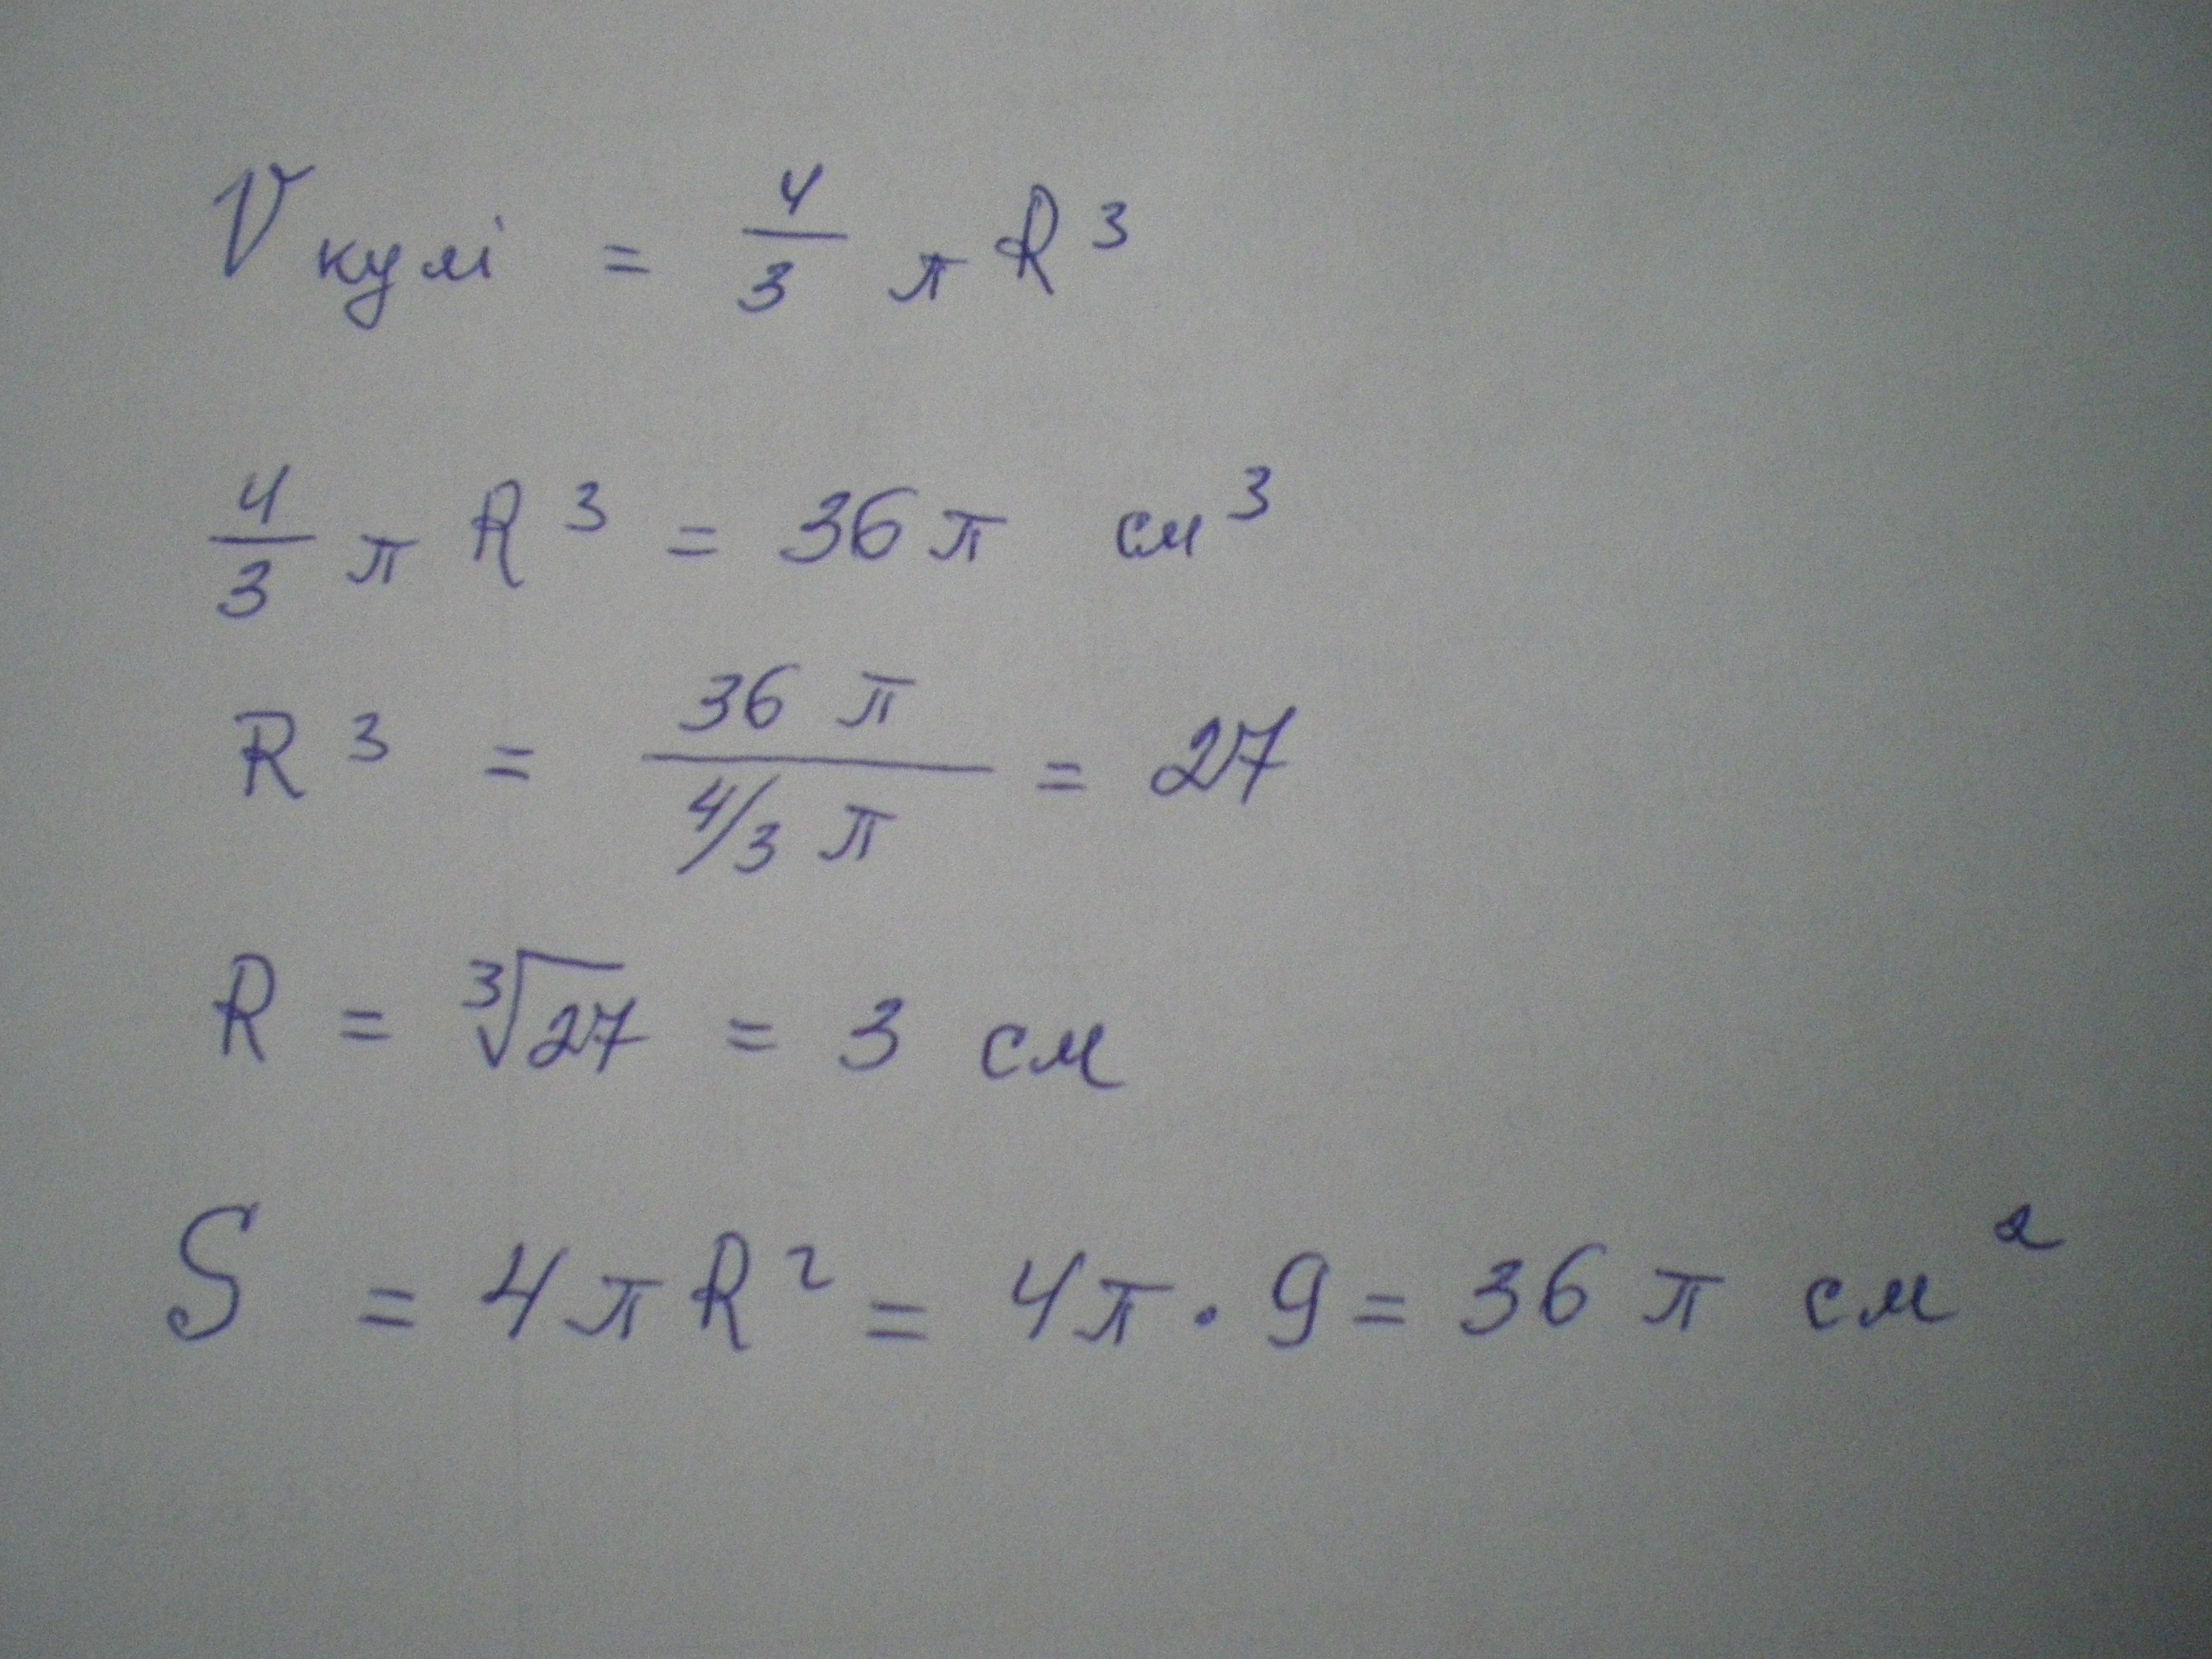 V кулі = 4/3 π R³
4/3 π R³ = 36 π см³
R³ = 36 π / (4/3 π) = 27
R = ∛27 = 3 см
S = 4 π R² = 4 π · 9 = 36 π см²